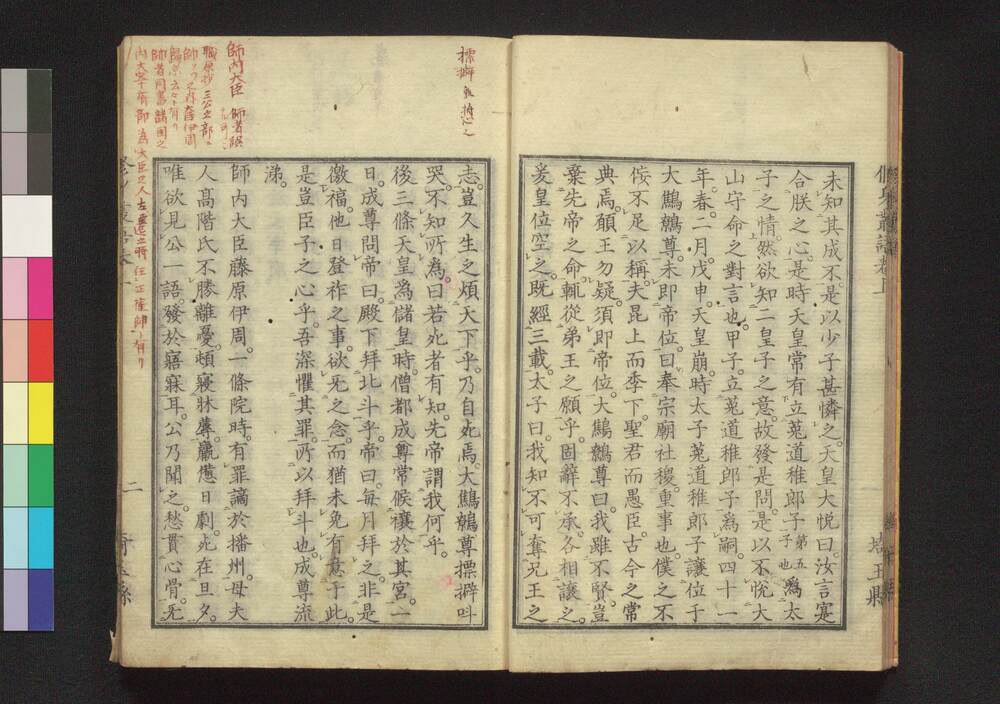 未知其成不是以少子甚憐之天皇大悦曰汝言寔
合朕之心是時天皇常有立菟道稚郎子第五子也為太
子之情然欲知二皇子之意故發是問是以不悦大
山守命之對言也甲子立菟道稚郎子為嗣四十一
年春二月戊申天皇崩時太子菟道稚郎子讓位于
大鷦鷯尊未即帝位曰奉宗廟社稷重事也僕之不
佞不足以稱夫昆上而季下聖君而愚臣古今之常
典焉願王勿疑須即帝位大鷦鷯尊曰我雖不賢豈
棄先帝之命輒從弟王之願乎固辭不承各相讓之
爰皇位空之既經三載太子曰我知不可奪兄王之
志豈久生之煩天下乎乃自死焉大鷦鷯尊摽擗叫
哭不知所為曰若死者有知先帝謂我何乎
後三條天皇為儲皇時僧都成尊常候禳於其宮一
日成尊問帝曰殿下拜北斗乎帝曰每月拜之非是
徼福他日登祚之事欲旡之念而猶未免有意于此
是豈臣子之心乎吾深懼其罪所以拜斗也成尊流
涕
師内大臣藤原伊周一條院時有罪謫於播州母夫
人高階氏不勝離憂頓寢牀蓐羸憊日劇死在旦夕
唯欲見公一語發於寤寐耳公乃聞之愁貫心骨旡
二
師内大臣